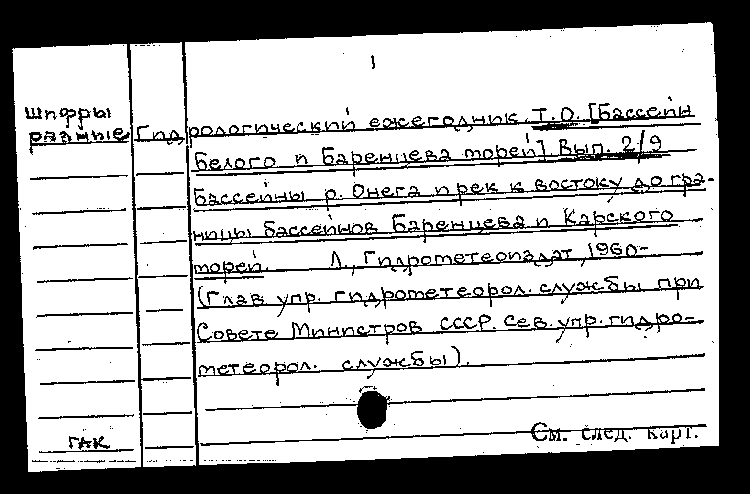 1
Шифры
разные
Гидрологический ежегодник. Т.О. [Бассейн
Белого и Баренцева морей] Вып. 2/9
Бассейны р. Онега и рек к востоку до гра-
ницы бассейнов Баренцева и Карского
морей. Л., Гидрометеоиздат, 1960-
(Глав. упр. гидрометеорол. службы при
Совете Министров СССР. Сев. упр. гидро-
метеорол. службы).
ГАК
См. след. карт.